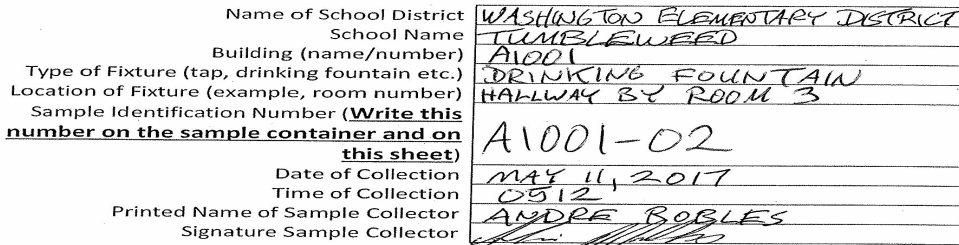 Name of School District WASHINGTON ELEMENTARY DISTRICT
School Name TUMBLEWEED
Building (name/number) A1001
Type of Fixture (tap, drinking fountain etc.) DRINKING FOUNTAIN
Location of Fixture (example, room number) HALLWAY BY ROOM 3
Sample Identification Number (Write this
number on the sample container and on
this sheet) A1001-02
Date of Collection MAY 11, 2017
Time of Collection 0512
Printed Name of Sample Collector ANDRE BOBLES
Signature Sample Collector